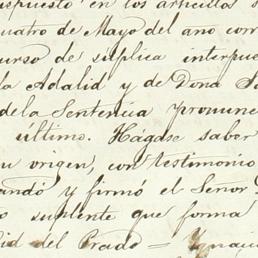 ispuesto en los articulos
uatro de Mayo del ano corr
urso de suplica interpue
la Adalid y de Dona
de la Sentencia pronunc
ultimo. Hágase saber
u origen, con testimonio
andó y firmó el Señor
o suplente que forma
id del Prado = Ygnaci